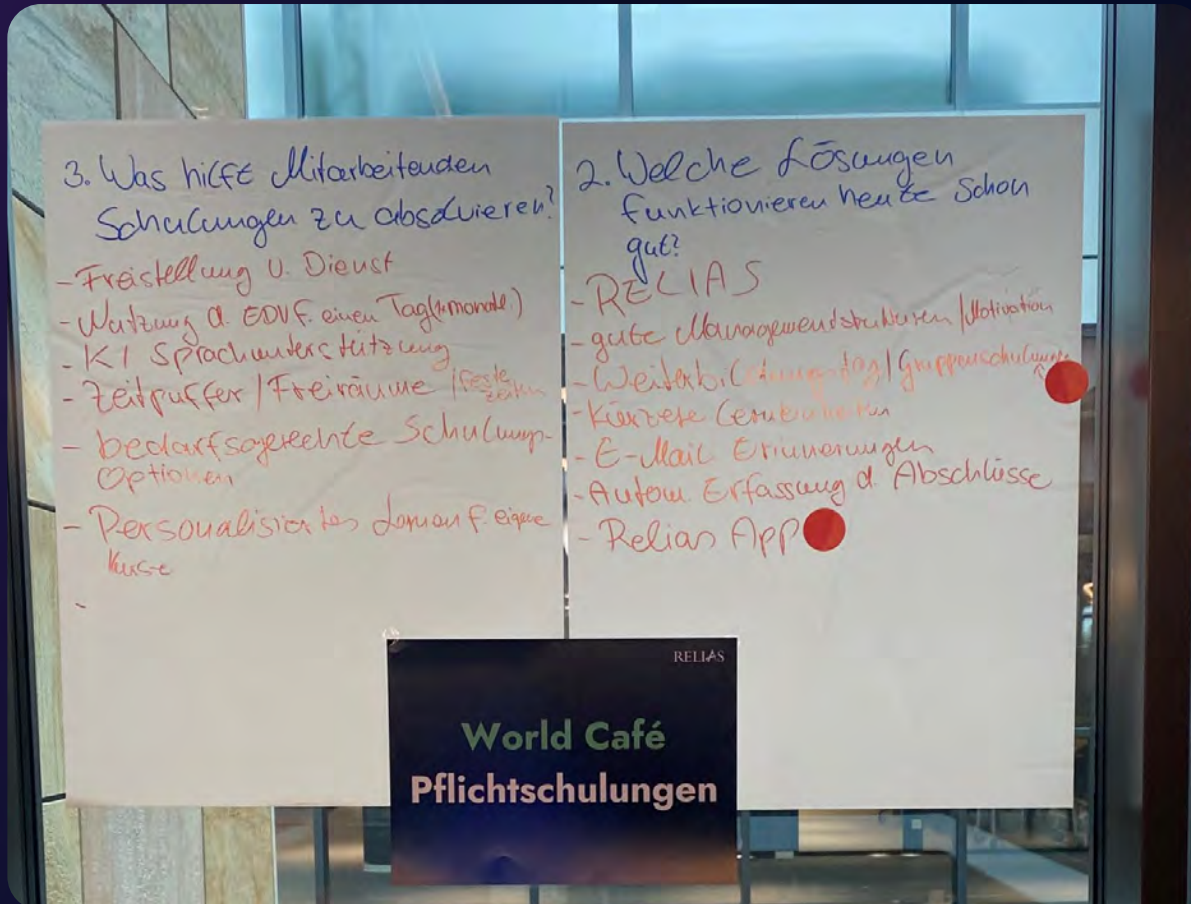 3. Was hilft Mitarbeitenden
Schulungen zu absolvieren?
- Freistellung v. Dienst
- Nutzung d. EDV f. einen Tag (monatl.)
- KI Sprachunterstützung
- Zeitpuffer / Freiräume / feste
Zeiten
- bedarfsgerechte Schulungs-
Optionen
- Personalisiertes Lernen f. eigene
Kurse
-
2. Welche Lösungen
funktionieren heute schon
gut?
- RELIAS
- gute Managementstrukturen / Motivation
- Weiterbildungstag / Gruppenschulung
- Kürzere Lerneinheiten
- E-Mail Erinnerungen
- Autom. Erfassung d. Abschlüsse
- Relias App
RELIAS
World Café
Pflichtschulungen